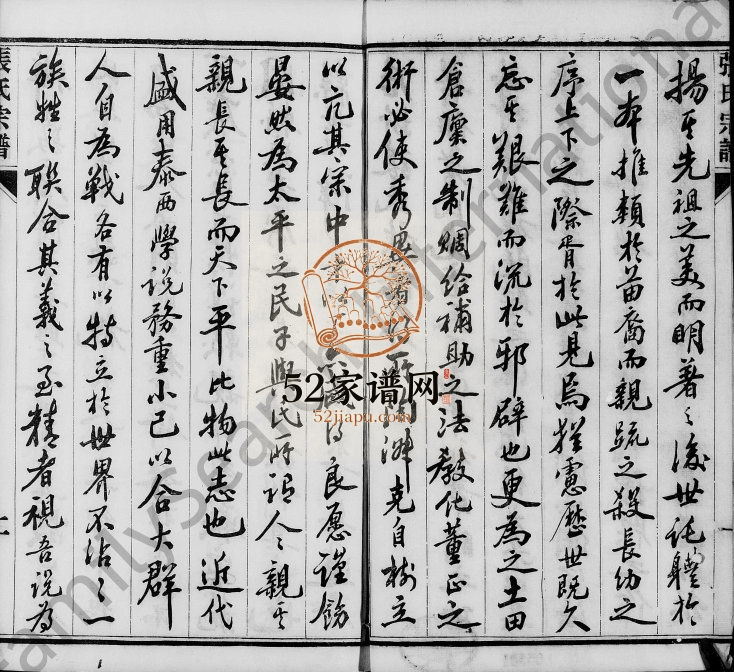 張氏宗譜
揚其先祖之美而明著之後世託軆於
一本推類於苗裔而親疏之殺長幼之
序上下之際胥於此見焉猶慮歷世既久
忘其艱難而流於邪辟也更為之土田
倉廩之制賙給補助之法教化董正之
術必使秀愚 克自樹立
以亢其宗中 良愿謹飭
晏然為太平之民子輿氏所謂人人親其
親長其長而天下平此物此志也近代
盛用泰西學說務重小己以合大群
人自為戰各有以特立於世界不沾沾一
族姓之聯合其義之至精者視吾說為
張氏宗譜
52家谱网
52jiapu.com
FamilySearch International